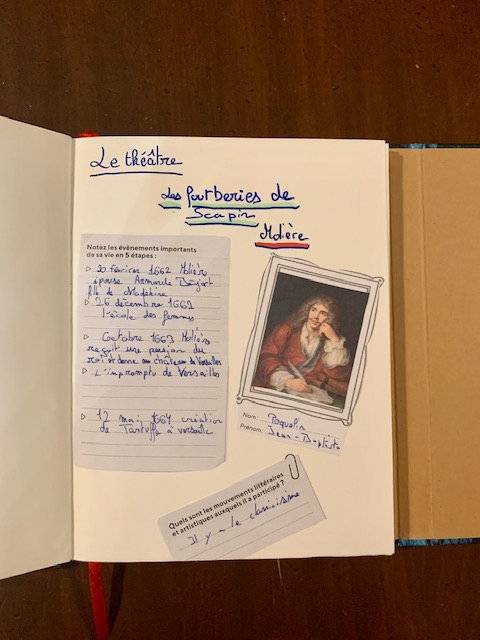 Le théâtre
Les fourberies de
Scapin
Molière
Notez les évènements importants
de sa vie en 5 étapes :
▷ 20 février 1662 Molière
épouse Armande Béjart
fille de Madeleine
▷ 26 décembre 1662
l'école des femmes
▷ Octobre 1663 Molière
reçoit une pension du
roi et donne au château de Versailles
▷ L'impromptu de Versailles
▷ 12 mai 1664 création
de Tartuffe à versaille
Nom : Poquelin
Prénom : Jean-Baptiste
Quels sont les mouvements littéraires
et artistiques auxquels il a participé ?
Il y a le classicisme